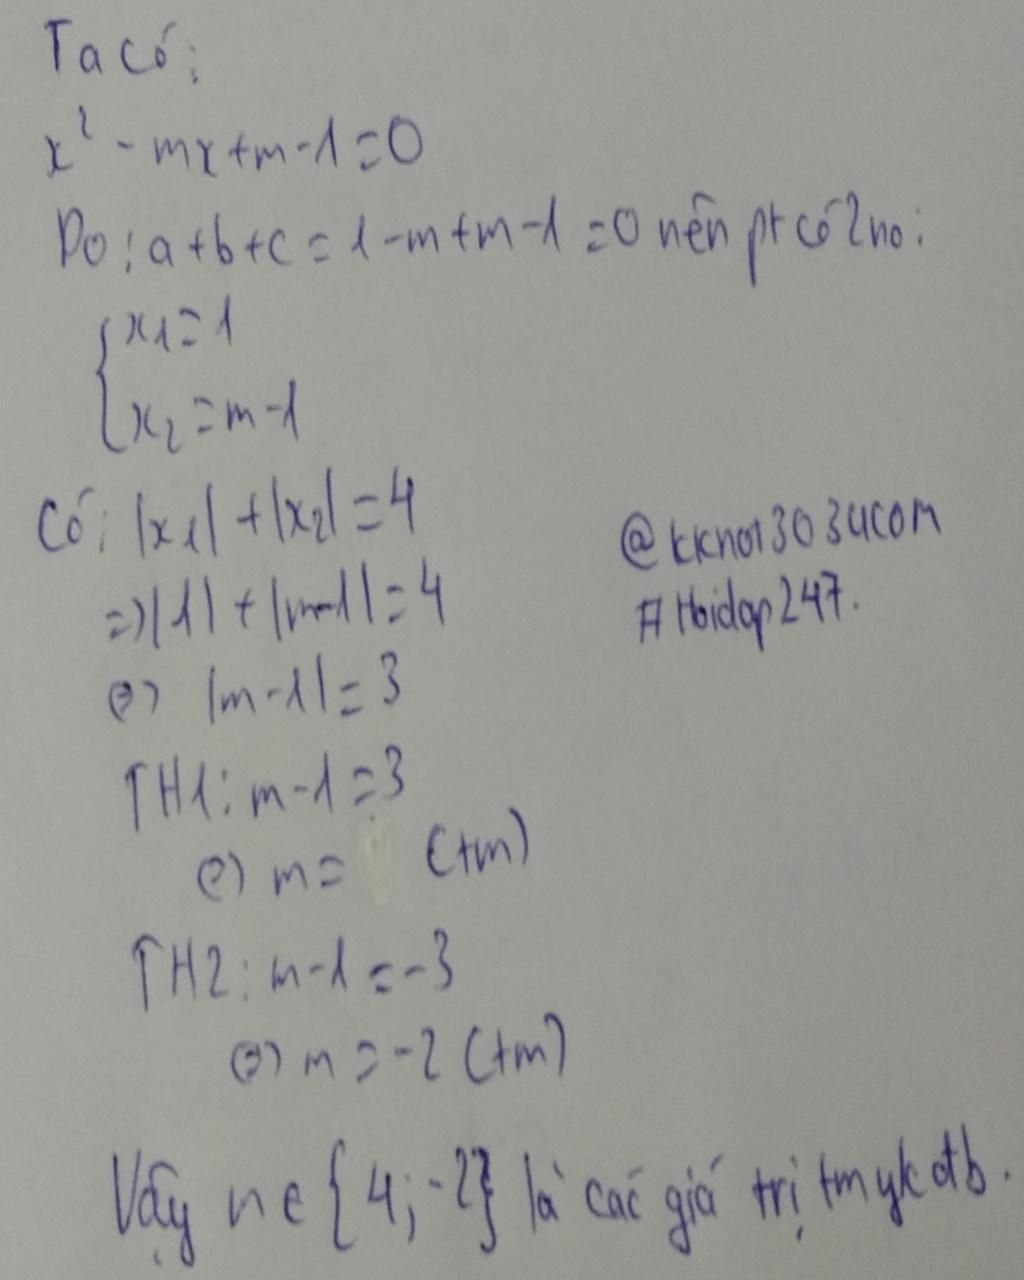 Ta có:
x² - mx + m - 1 = 0
Do: a + b + c = 1 - m + m - 1 = 0 nên pt có 2 no:
{ x₁ = 1
x₂ = m - 1
Có: |x₁| + |x₂| = 4
=> |1| + |m-1| = 4
<=> |m - 1| = 3
TH1: m - 1 = 3
<=> m = (tm)
TH2: m - 1 = -3
<=> m = -2 (tm)
Vậy m ∈ {4; -2} là các giá trị tm yk đb.
#Hoidap247.